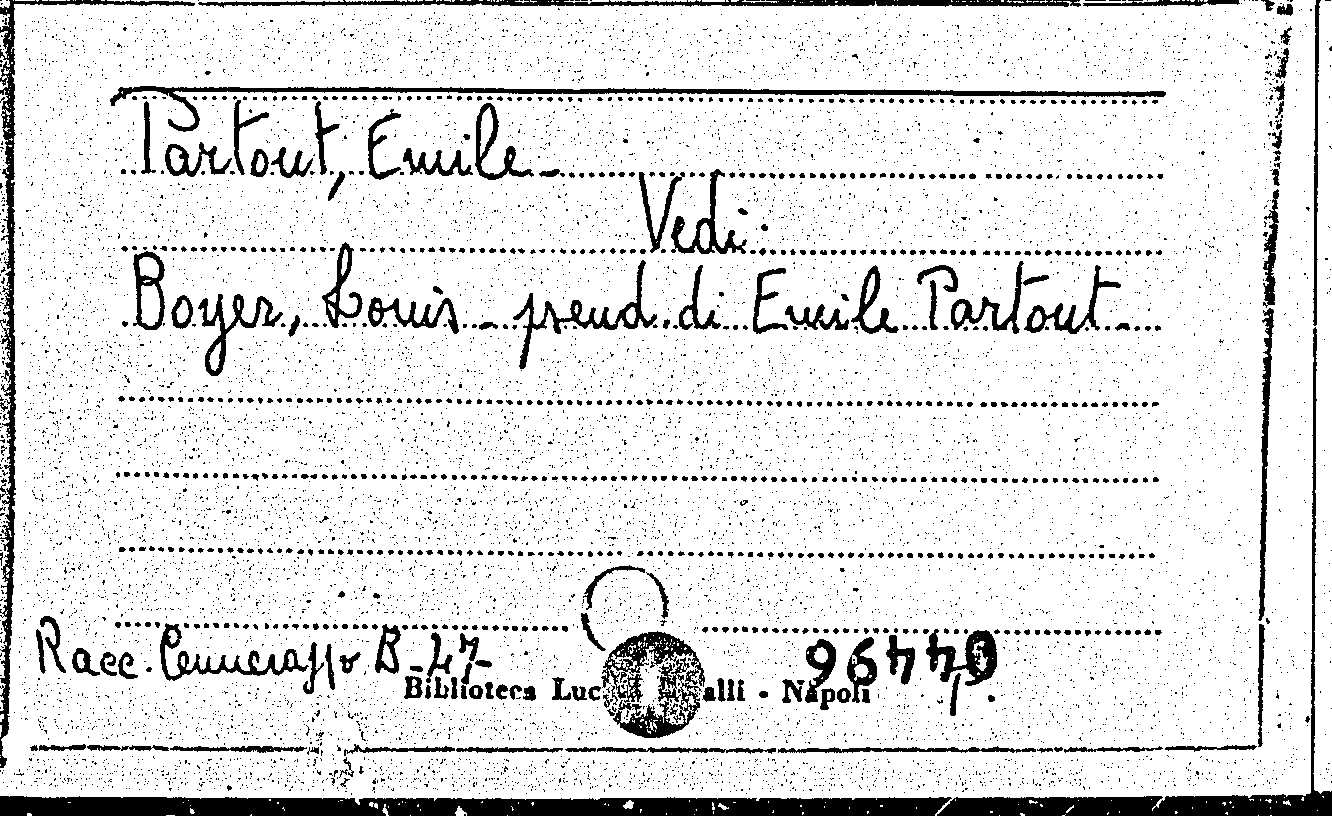 Partout, Emile -
Vedi:
Boyer, Louis - pseud. di Emile Partout -
Racc. B-47-
Biblioteca Luc alli - Napoli